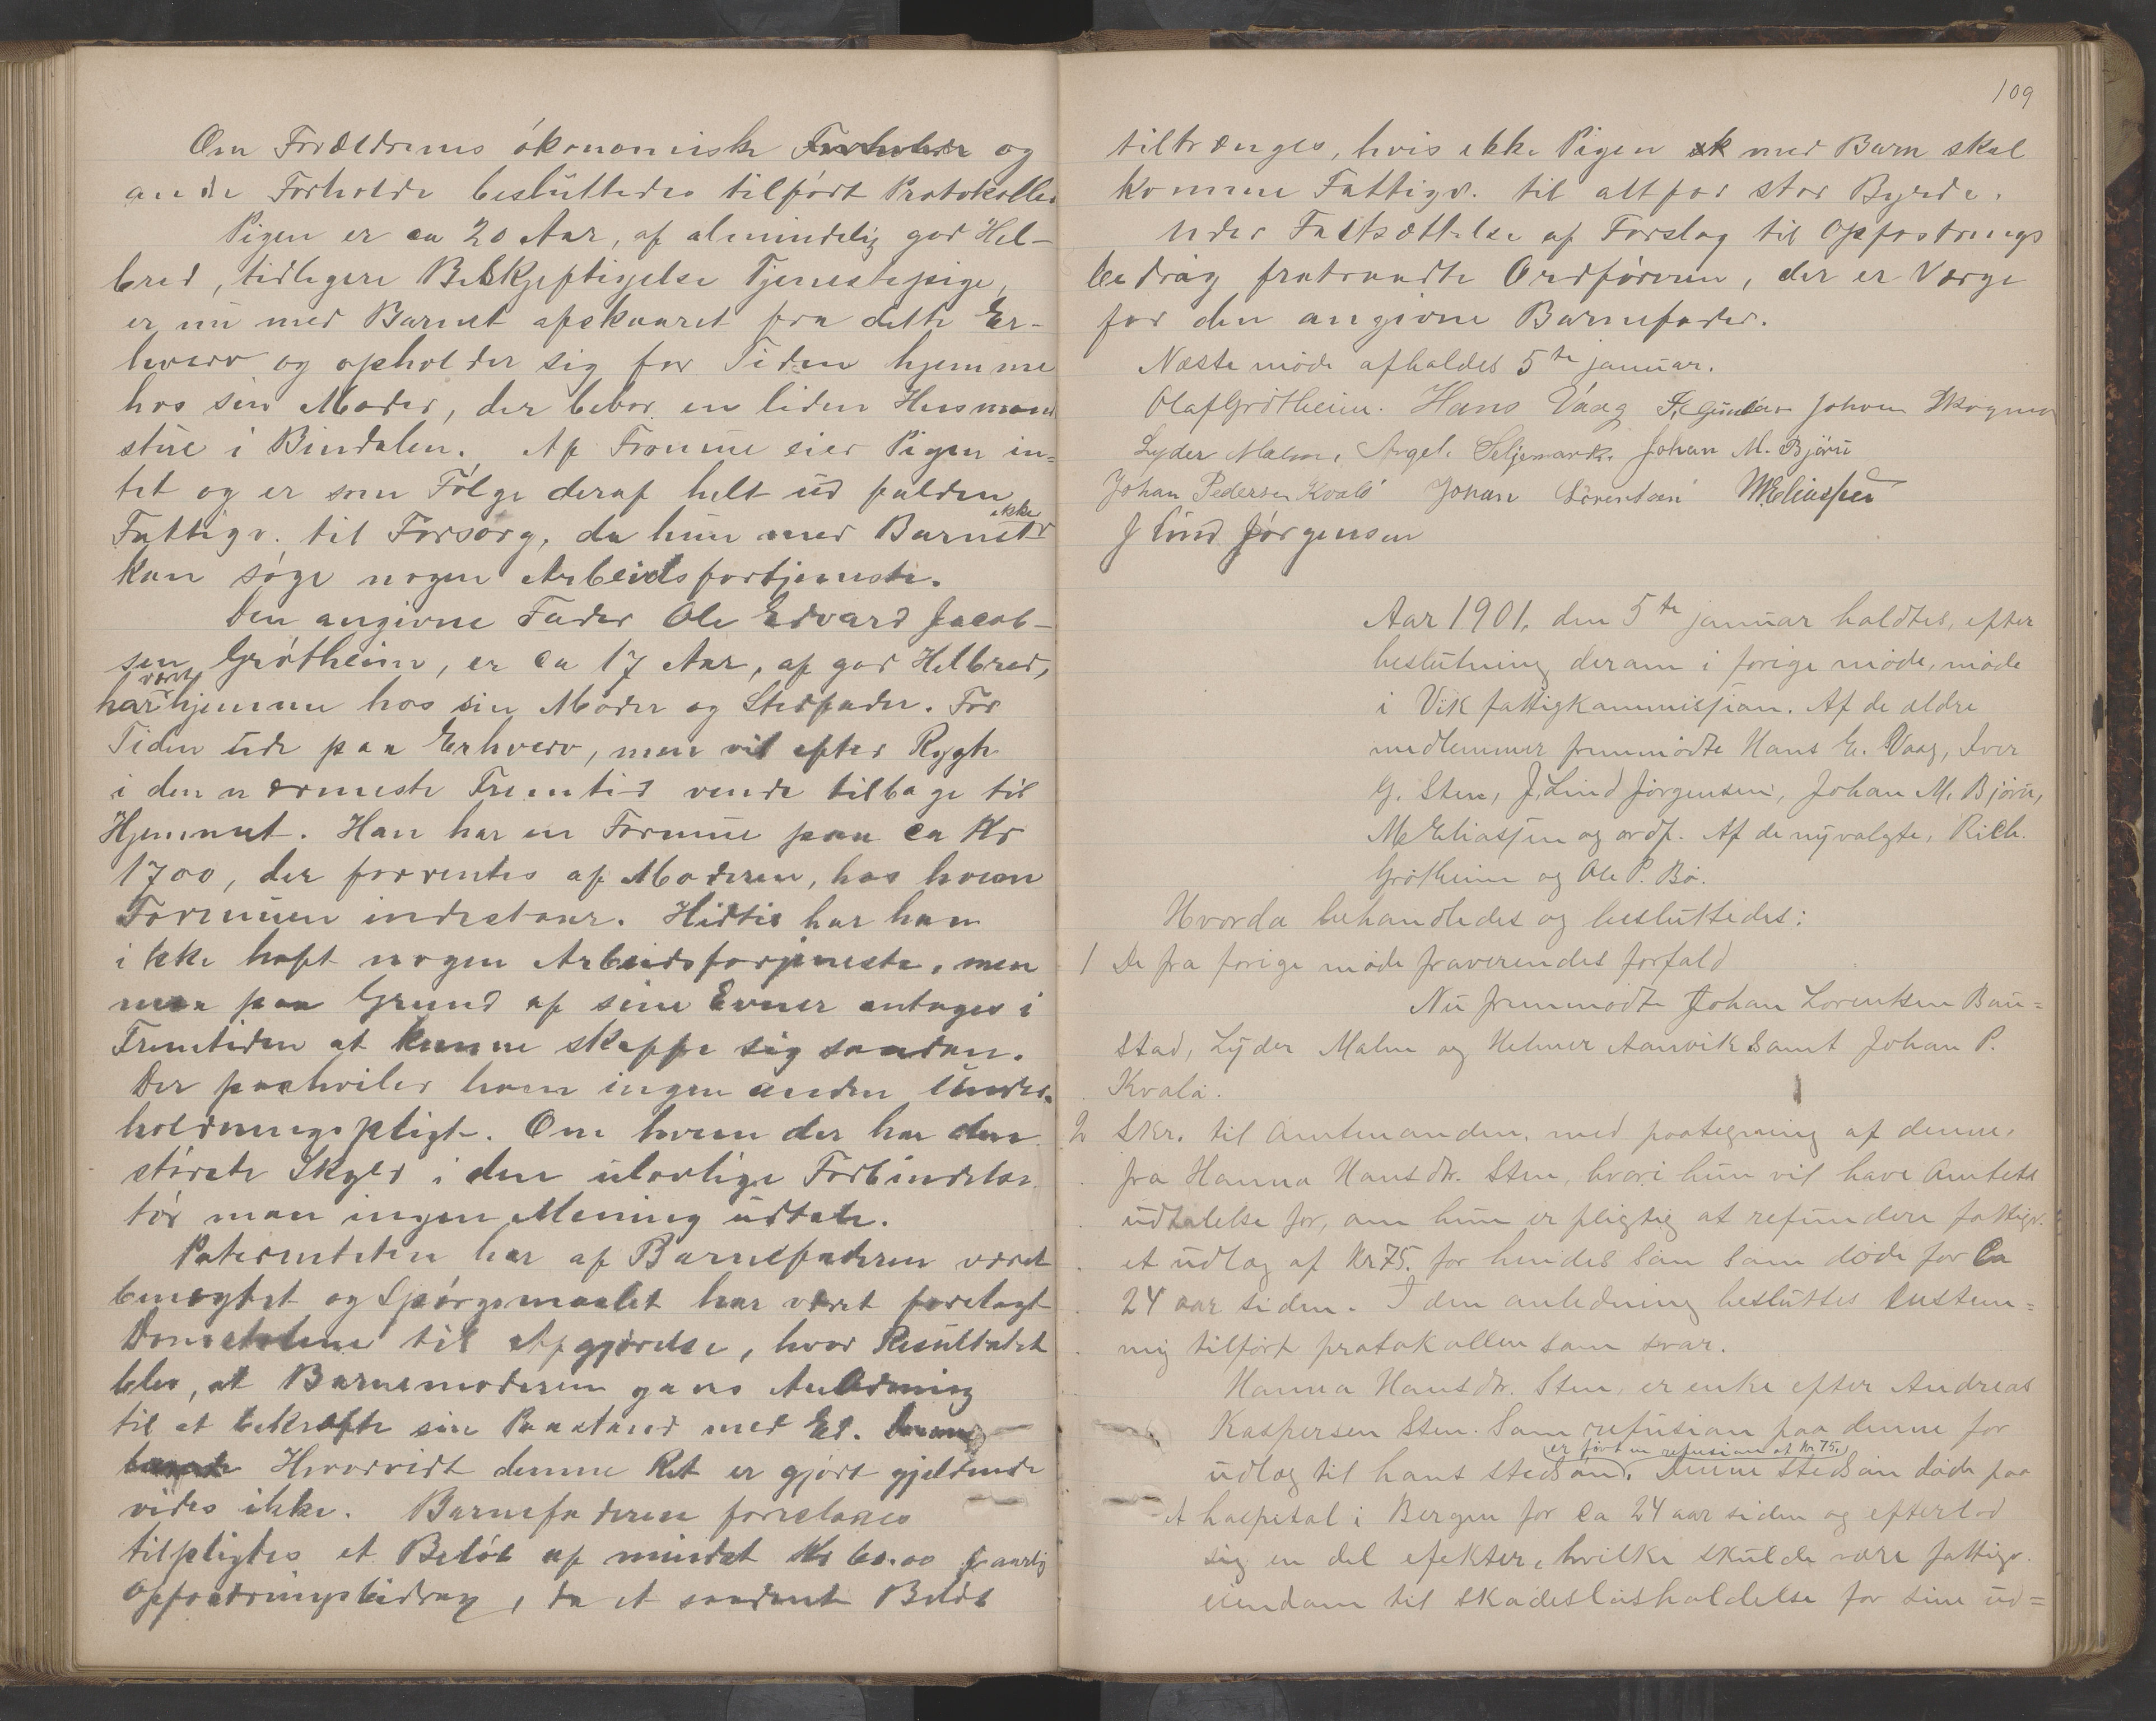 Om Forældrenes ókonomiske Forholde og
andre Forholde besluttedes tilfört Protokollen
Pigen er ca 20 Aar, af almindelig god Hel-
bred, tidligere Beskjeftigelse Tjenestepige,
er nu med Barnet afskaaret fra dette Er-
hverv og opholder sig for Tiden hjemme
hos sin Moder, der bebor en liden Husmans
stue i Bindalen. Af Formue eier Pigen in-
tet og er som Fólge deraf helt udfalden
Fattigv. til Forsórg, da hun med Barnet ikke
kan sóge nogen Arbeidsfortjeneste.
Den angivne Fader Ole Edvard Jacob-
sen Grótheim, er ca 17 Aar, af god Helbred,
har været hjemme hos sin Moder og Stedfader. For
Tiden ude paa Erhverv, men vil efter Rygte
i den nærmeste Fremtid vende tilbage til
Hjemmet. Han har en Formue paa ca Kr
1700, der forrentes af Moderen, hos hvem
Formuen indestaar. Hidtil har han
ikke haft nogen Arbeidsforjeneste, men
maa paa Grund af sine Evner antages i
Fremtiden at kunne skaffe sig saadan.
Der paahviler ham ingen anden Under-
holdningspligt. Om hvem der har den
störste Skyld i den ulovlige Forbindelse
tór man ingen Mening udtale.
Paterniteten har af Barnefaderen været
benegtet og Spórgsmaalet har været forelagt
Domstolene til Afgjörelse, hvor Resultatet
blev, at Barnemoderen gaves Anledning
til at bekræfte sin Paastand med Ed.
Hvorvidt denne Ret er gjört gjeldende
vides ikke. Barnefaderen foreslaaes
tilpligtes et Belób af mindst Kr 60.00 aarlig
Opfostringsbidrag, da et saadant Belób
109
tiltrænges, hvis ikke Pigen med Barn skal
komme Fattigv. til altfor stor Byrde.
Under Fastsættelse af Forslag til Opfostrings
bedrag fratraadte Ordfóreren, der er Værge
for den angivne Barnefader.
Næste móde afholdes 5te januar.
Olaf Grótheim. Hans Vaag Johan Skogmo
Lyder Malm, Angel. Seljemark. Johan M. Bjóru
Johan Pedersen Kvaló Johan Lorentsen M Eliassen
J Lind Jörgensen
Aar 1901, den 5te januar holdtes, efter
beslutning derom i forige móde, móde
i Vik fattigkommission. Af de ældre
medlemmer fremmódte Hans E. Vaag, Iver
G. Sten, J. Lind Jörgensen, Johan M. Bjóru,
M Eliassen og ordf. Af de nyvalgte, Rich.
Grótheim og Ole P. Bó.
Hvorda behandledes og besluttedes:
1 De fra forige móde fraverendes forfald
Nu fremmódte Johan Lorentsen Bau=
stad, Lyder Malm og Helmer Aanvik samt Johan P.
Kvaló.
2 Skr. til Amtmanden, med paategning af denne,
fra Hanna Hansdtr. Sten, hvori hun vil have Amtets
udtalelse for, om hun er pligtig at refundere fattigv.
et udlæg af Kr 75. for hendes són som döde for ca
24 aar siden. I den anledning besluttes enstem=
mig tilfört protokollen som svar.
Hanna Hansdtr. Sten, er enke efter Andreas
Kaspersen Sten. Som refusion paa denne for
udlæg til hans stedsón, er fört en refusion af Kr 75. Denne stedsón döde paa
et hospetal i Bergen for ca 24 aar siden og efterlod
sig en del efekter, hvilke skulde være fattigv.
eiendom til skadeslósholdelse for sine ud=